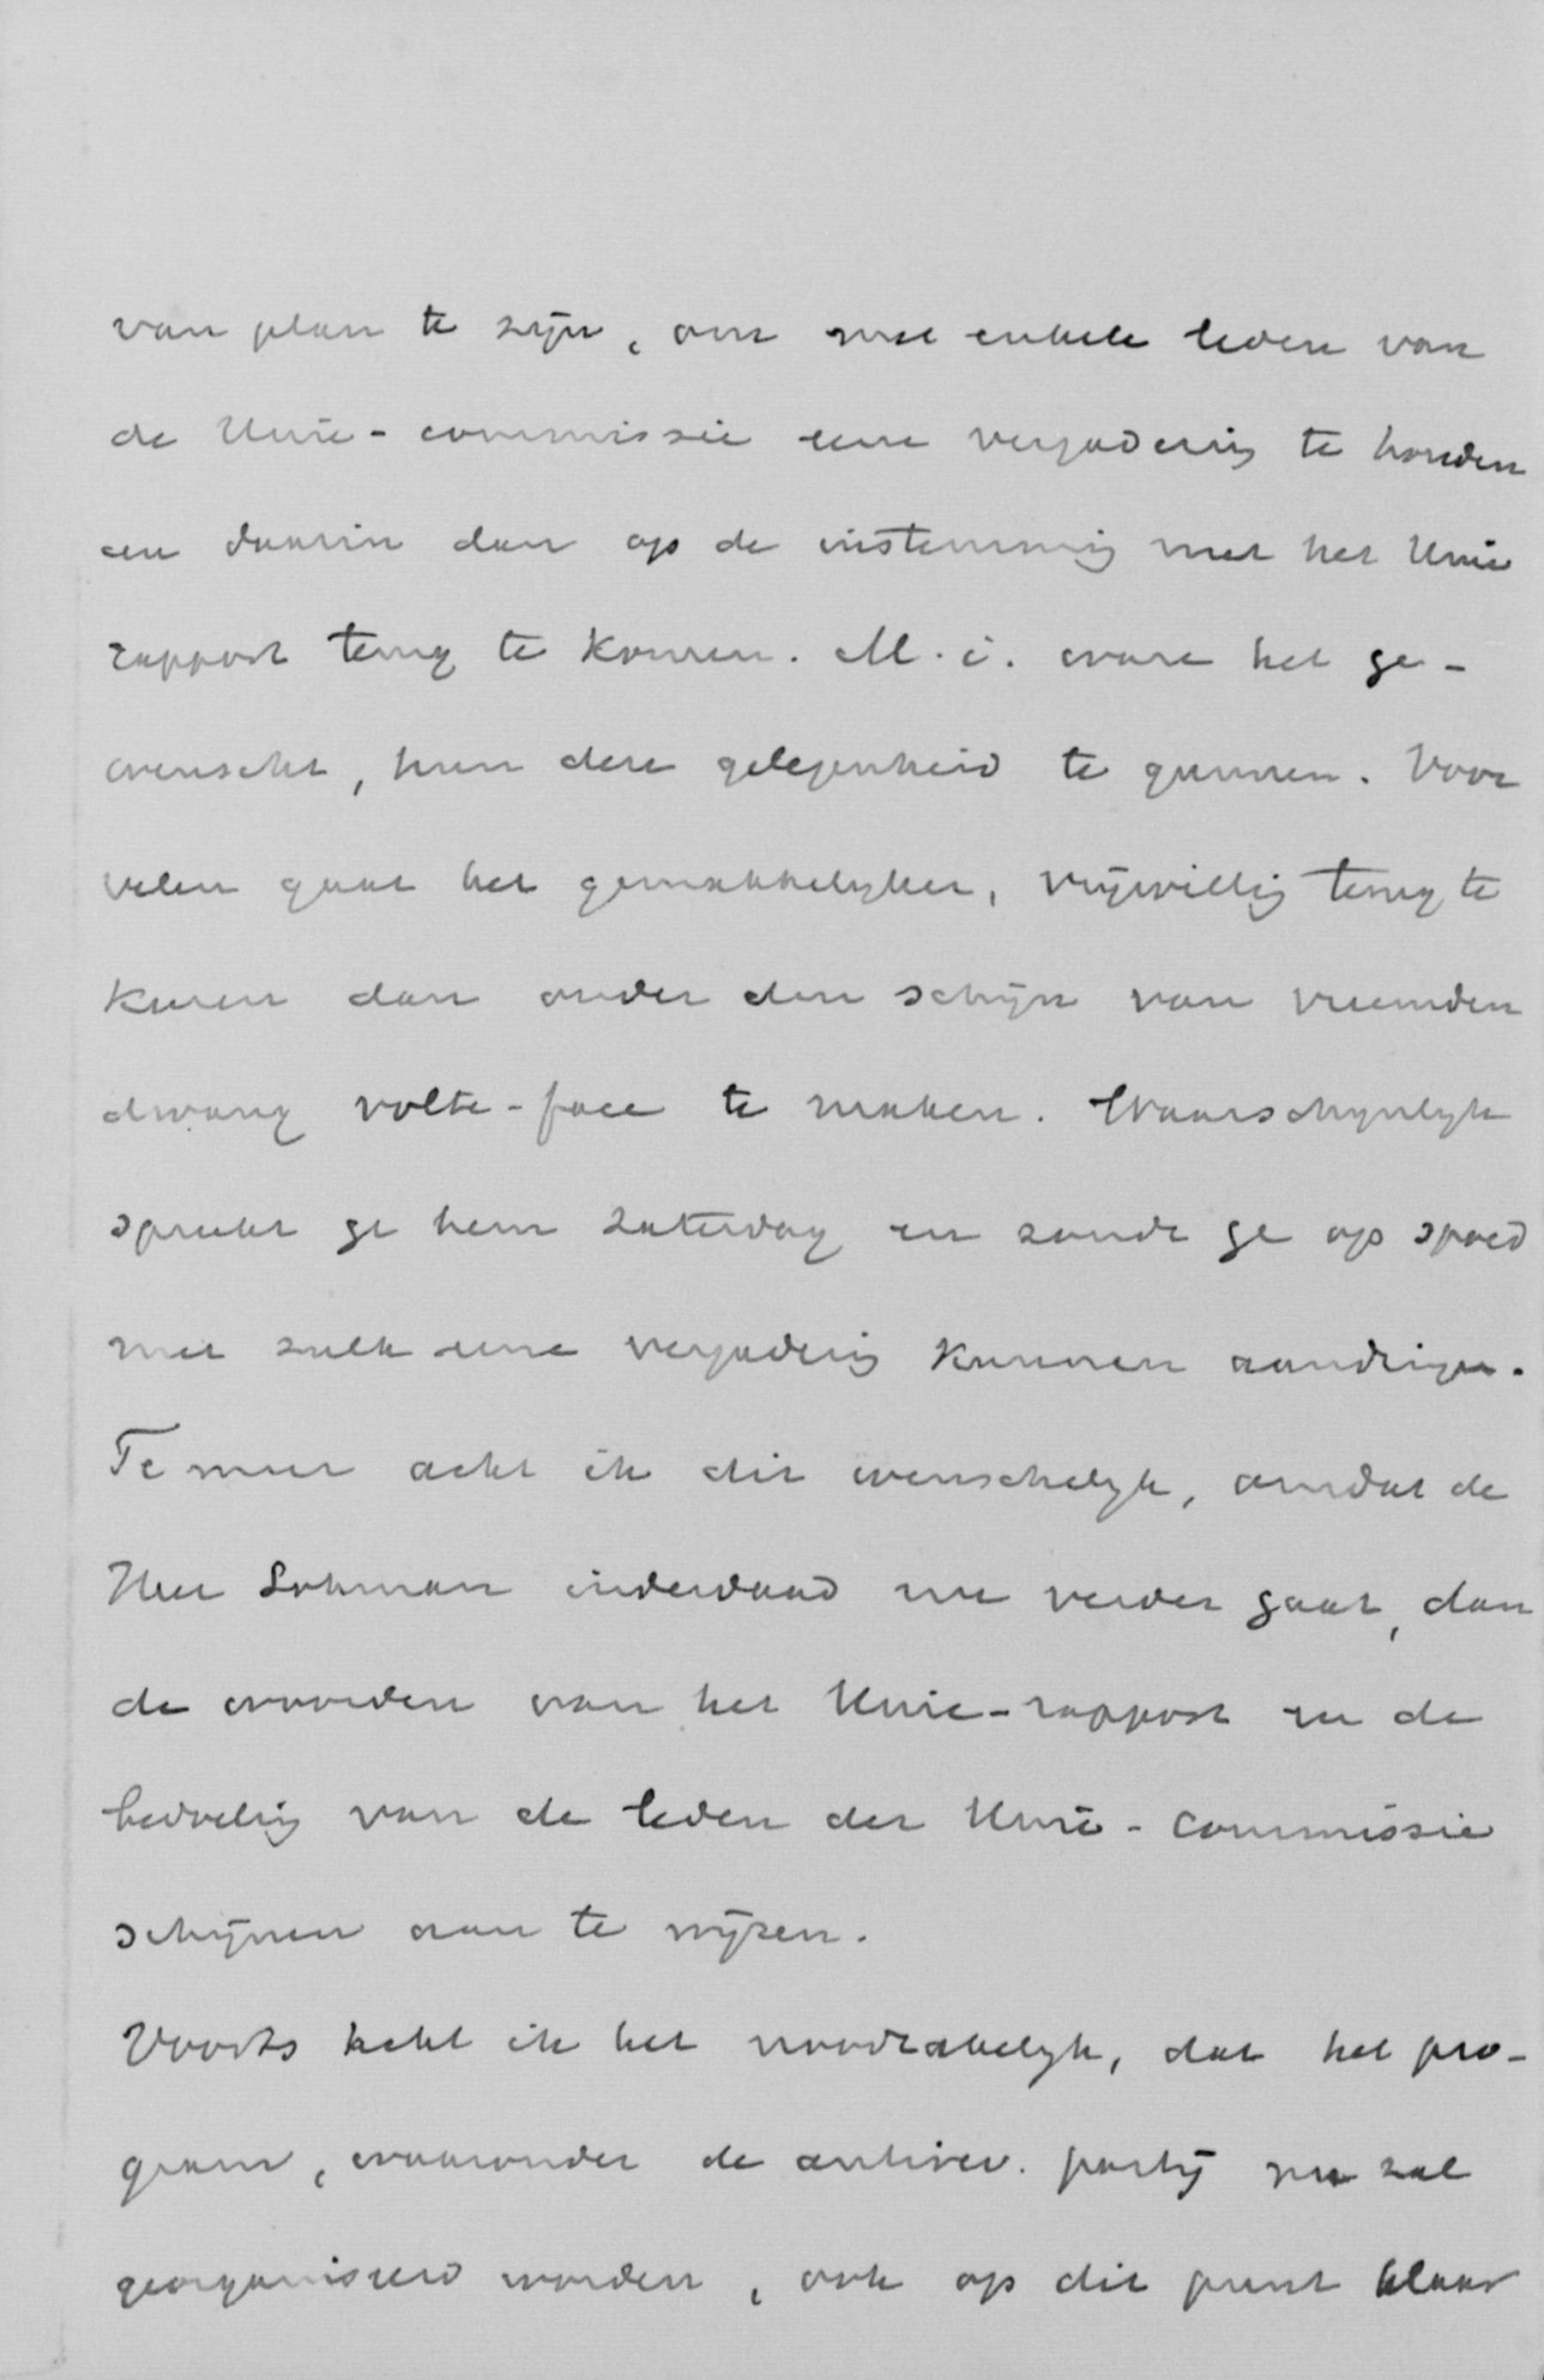 van plan te zijn, om met enkele leden van
de Unie-commissie eene vergadering te houden
en daarin dan op de instemming met het Unie
rapport terug te komen. M.i. ware het ge-
wenscht, hun deze gelegenheid te gunnen. Voor
velen gaat het gemakkelyker, vrijwillig terug te
komen dan onder den schijn van vreemden
dwang volte-face te maken. Waarschynlyk
spreekt ge hem Zaterdag en zoudt ge op spoed
met zulk eene vergadering kunnen aandringen.
Te meer acht ik dit wenschelyk, omdat de
Heer Lohman inderdaad nu verder gaat, dan
de woorden van het Unie-rapport en de
bedoeling van de leden der Unie-Commissie
schijnen aan te wijzen.
Voorts acht ik het noodzakelyk, dat het pro-
gram, waaronder de antirev. partij nu zal
georganiseerd worden, ook op dit punt klaar